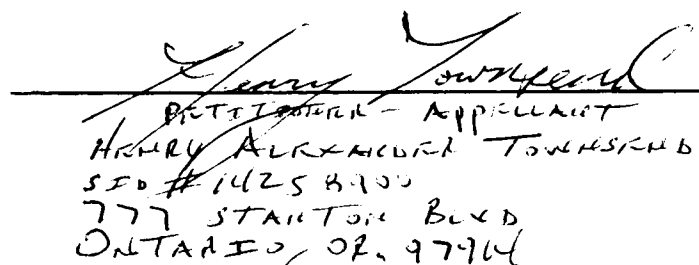 Henry Townsend
PETITIONER - APPELLANT
HENRY ALEXANDER TOWNSEND
SID #14258900
777 STANTON BLVD
ONTARIO, OR. 97914